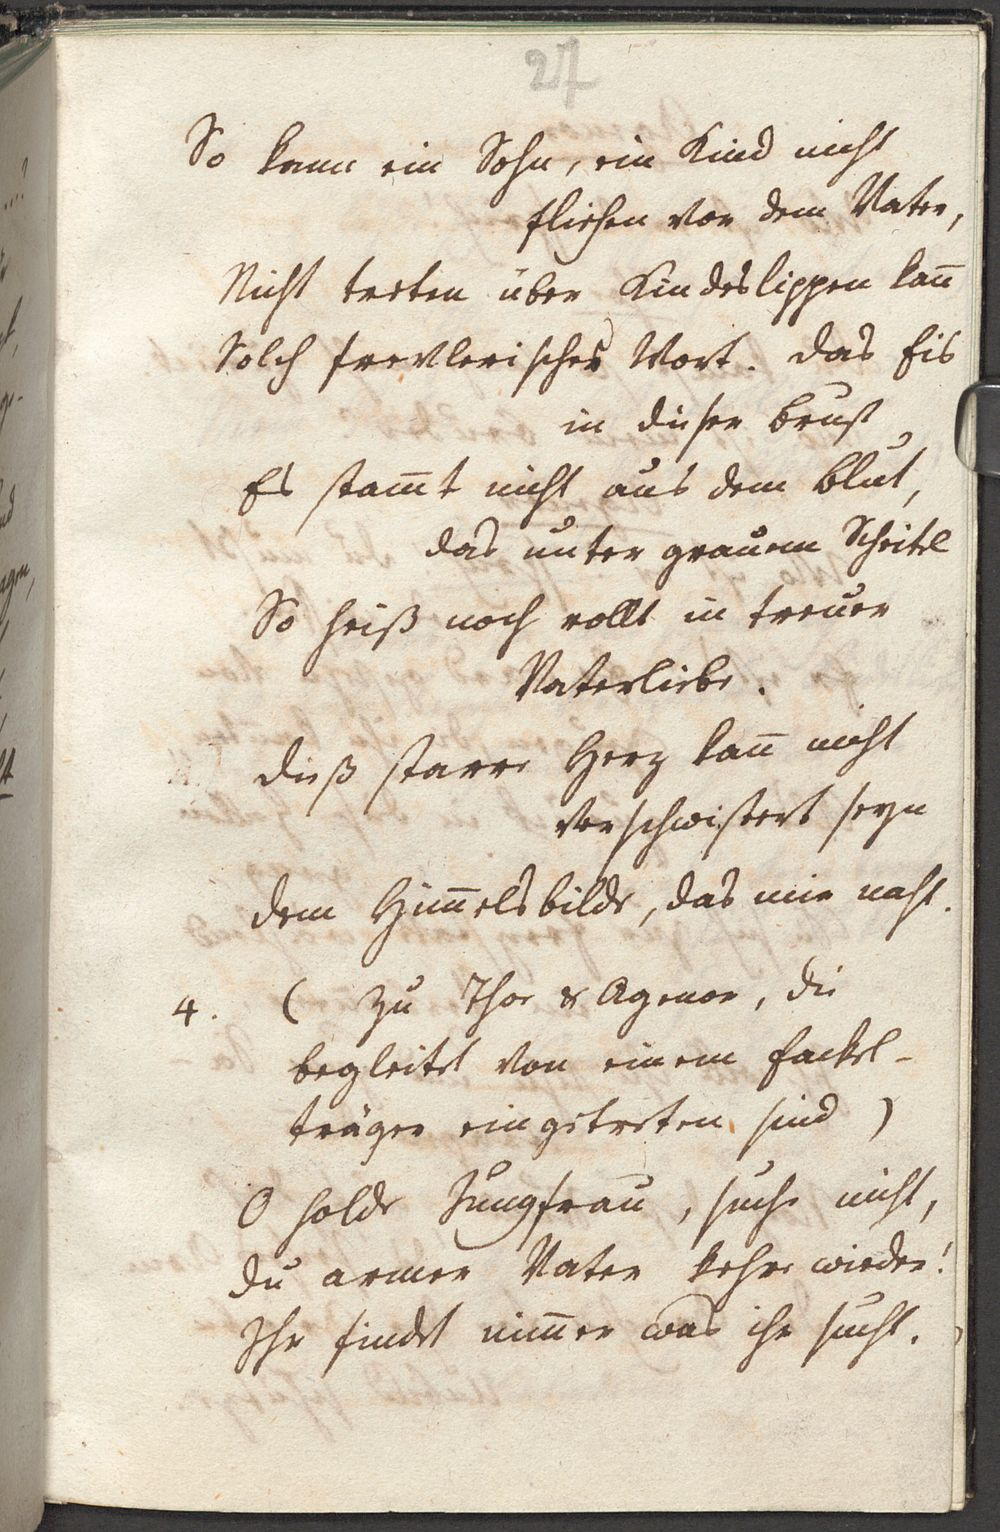 27
So kann ein Sohn, ein Kind nicht
fliehen vor dem Vater,
Nicht treten über Kindeslippen kan̄
Solch frevlerisches Wort. Das Eis
in dieser Brust
Es stam̄t nicht aus dem Blut,
das unter grauem Scheitel
So heiß noch rollt in treuer
Vaterliebe.
Dieß starre Herz kan̄ nicht
verschwistert seyn
dem Him̄elsbilde, das mir naht.
4. ( Zu Thor & Agenor, die
begleitet von einem Fackel-
träger eingetreten sind )
O holde Jungfrau, suche nicht,
Du armer Vater kehre wieder!
Ihr findet nim̄er was ihr sucht.